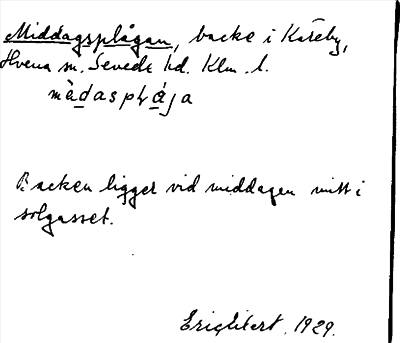 Middagsplågan, backe i Kåreby,
Hvena sn. Sevede hd. Klm. l.
mèdasplája
Backen ligger vid middagen mitt i
solgasset.
1929.